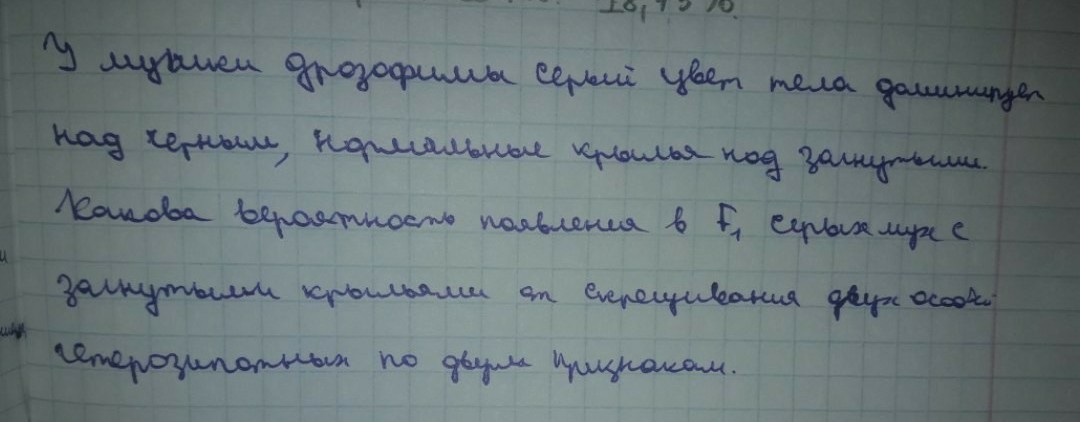 18,75%.
У мушки дрозофилы серый цвет тела доминирует
над черным, нормальные крылья над загнутыми.
Какова вероятность появления в F₁ серых мух с
загнутыми крыльями от скрещивания двух особей
гетерозиготных по двум признакам.